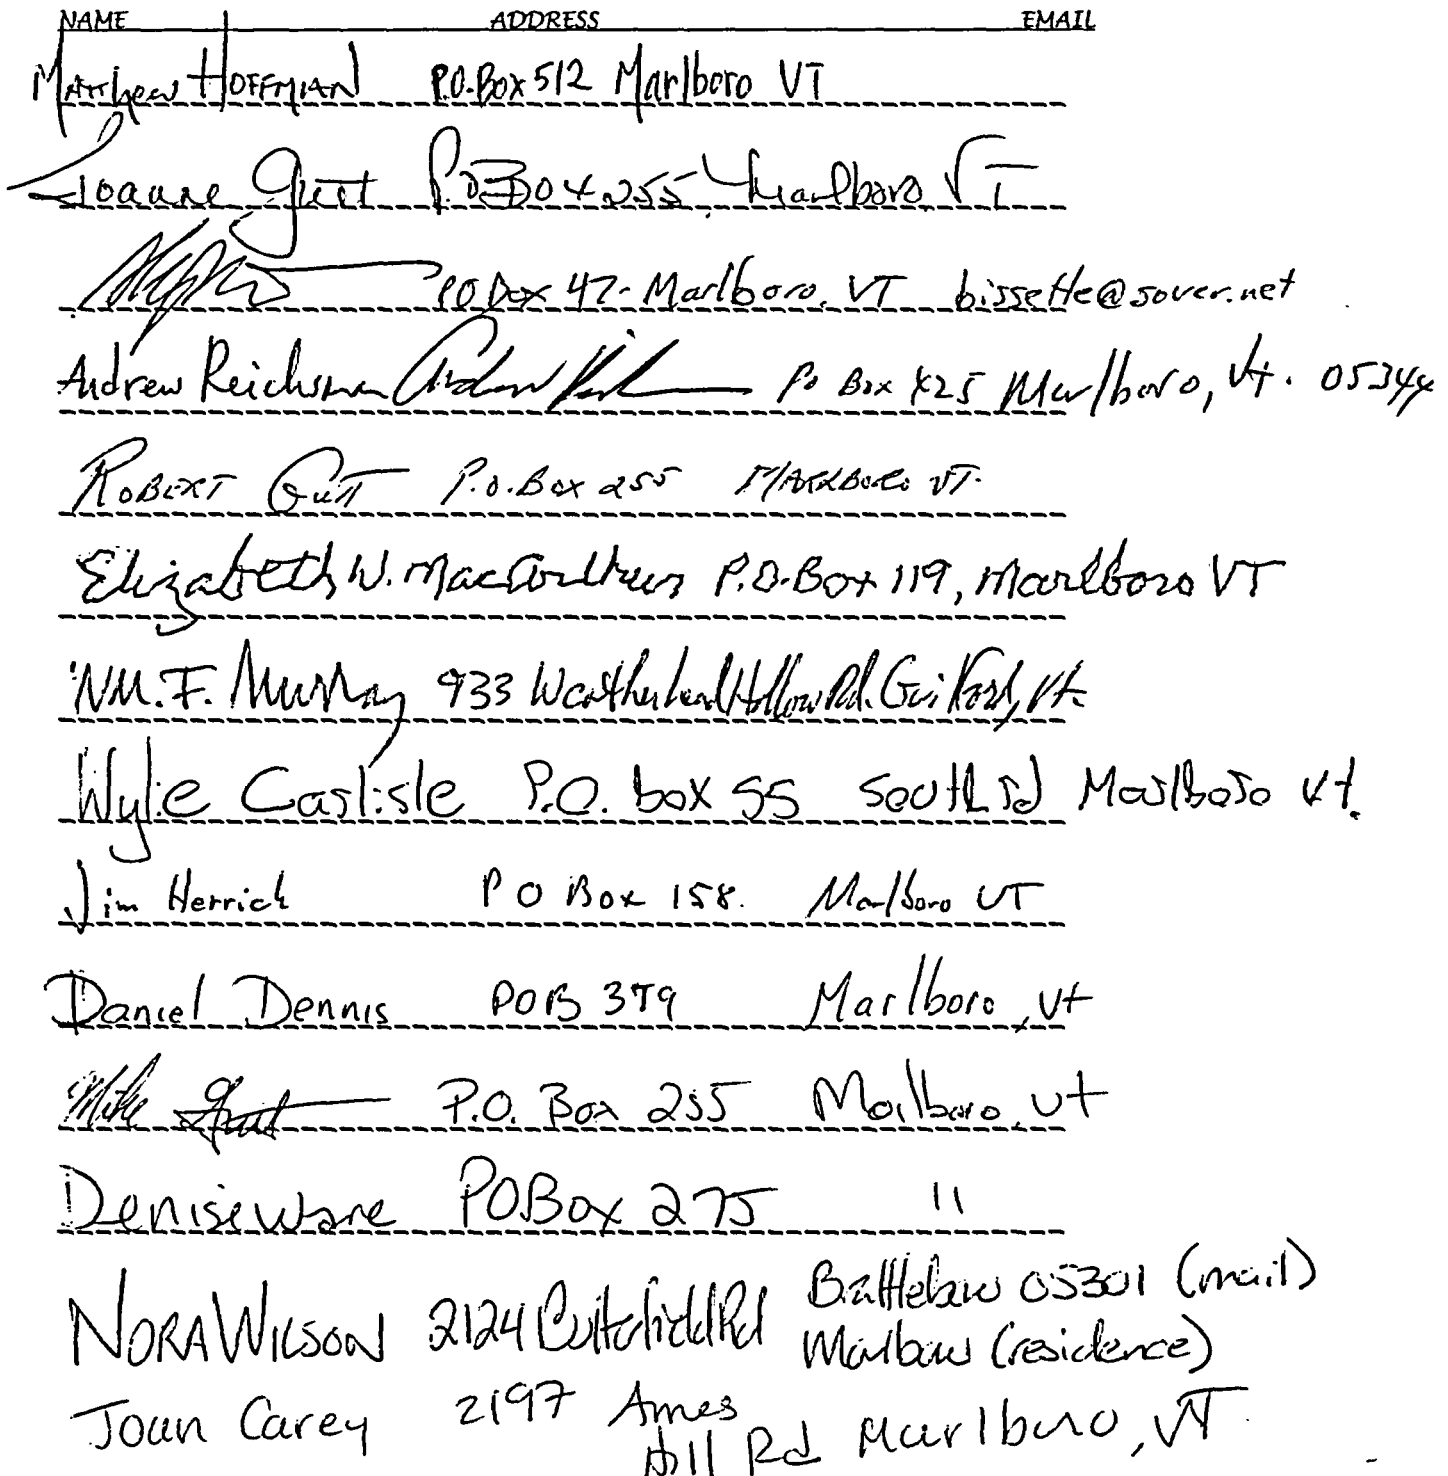 NAME ADDRESS EMAIL
Matthew HOFFMAN P.O. Box 512 Marlboro VT
Joanne Gutt P.O Box 255, Marlboro, VT
PO Box 47 - Marlboro, VT bissette@sover.net
Andrew Reichsman Po Box 425 Marlboro, Vt. 05344
ROBERT GUTT P.O. Box 255 MARLBORO VT.
Elizabeth W. MacArthur P.O. Box 119, Marlboro VT
WM. F. Murray 933 Weatherhead Hollow Rd. Guilford, Vt.
Wylie Carlisle P.O. box 55 South rd Marlboro Vt.
Jim Herrick P O Box 158. Marlboro VT
Daniel Dennis POB 379 Marlboro, Vt
Mike Gutt P.O. Box 255 Marlboro, Vt
Denise Ware PO Box 275 "
NORA WILSON 2124 Butterfield Rd Brattleboro 05301 (mail)
Marlboro (residence)
Joan Carey 2197 Ames
Hill Rd Marlboro, VT